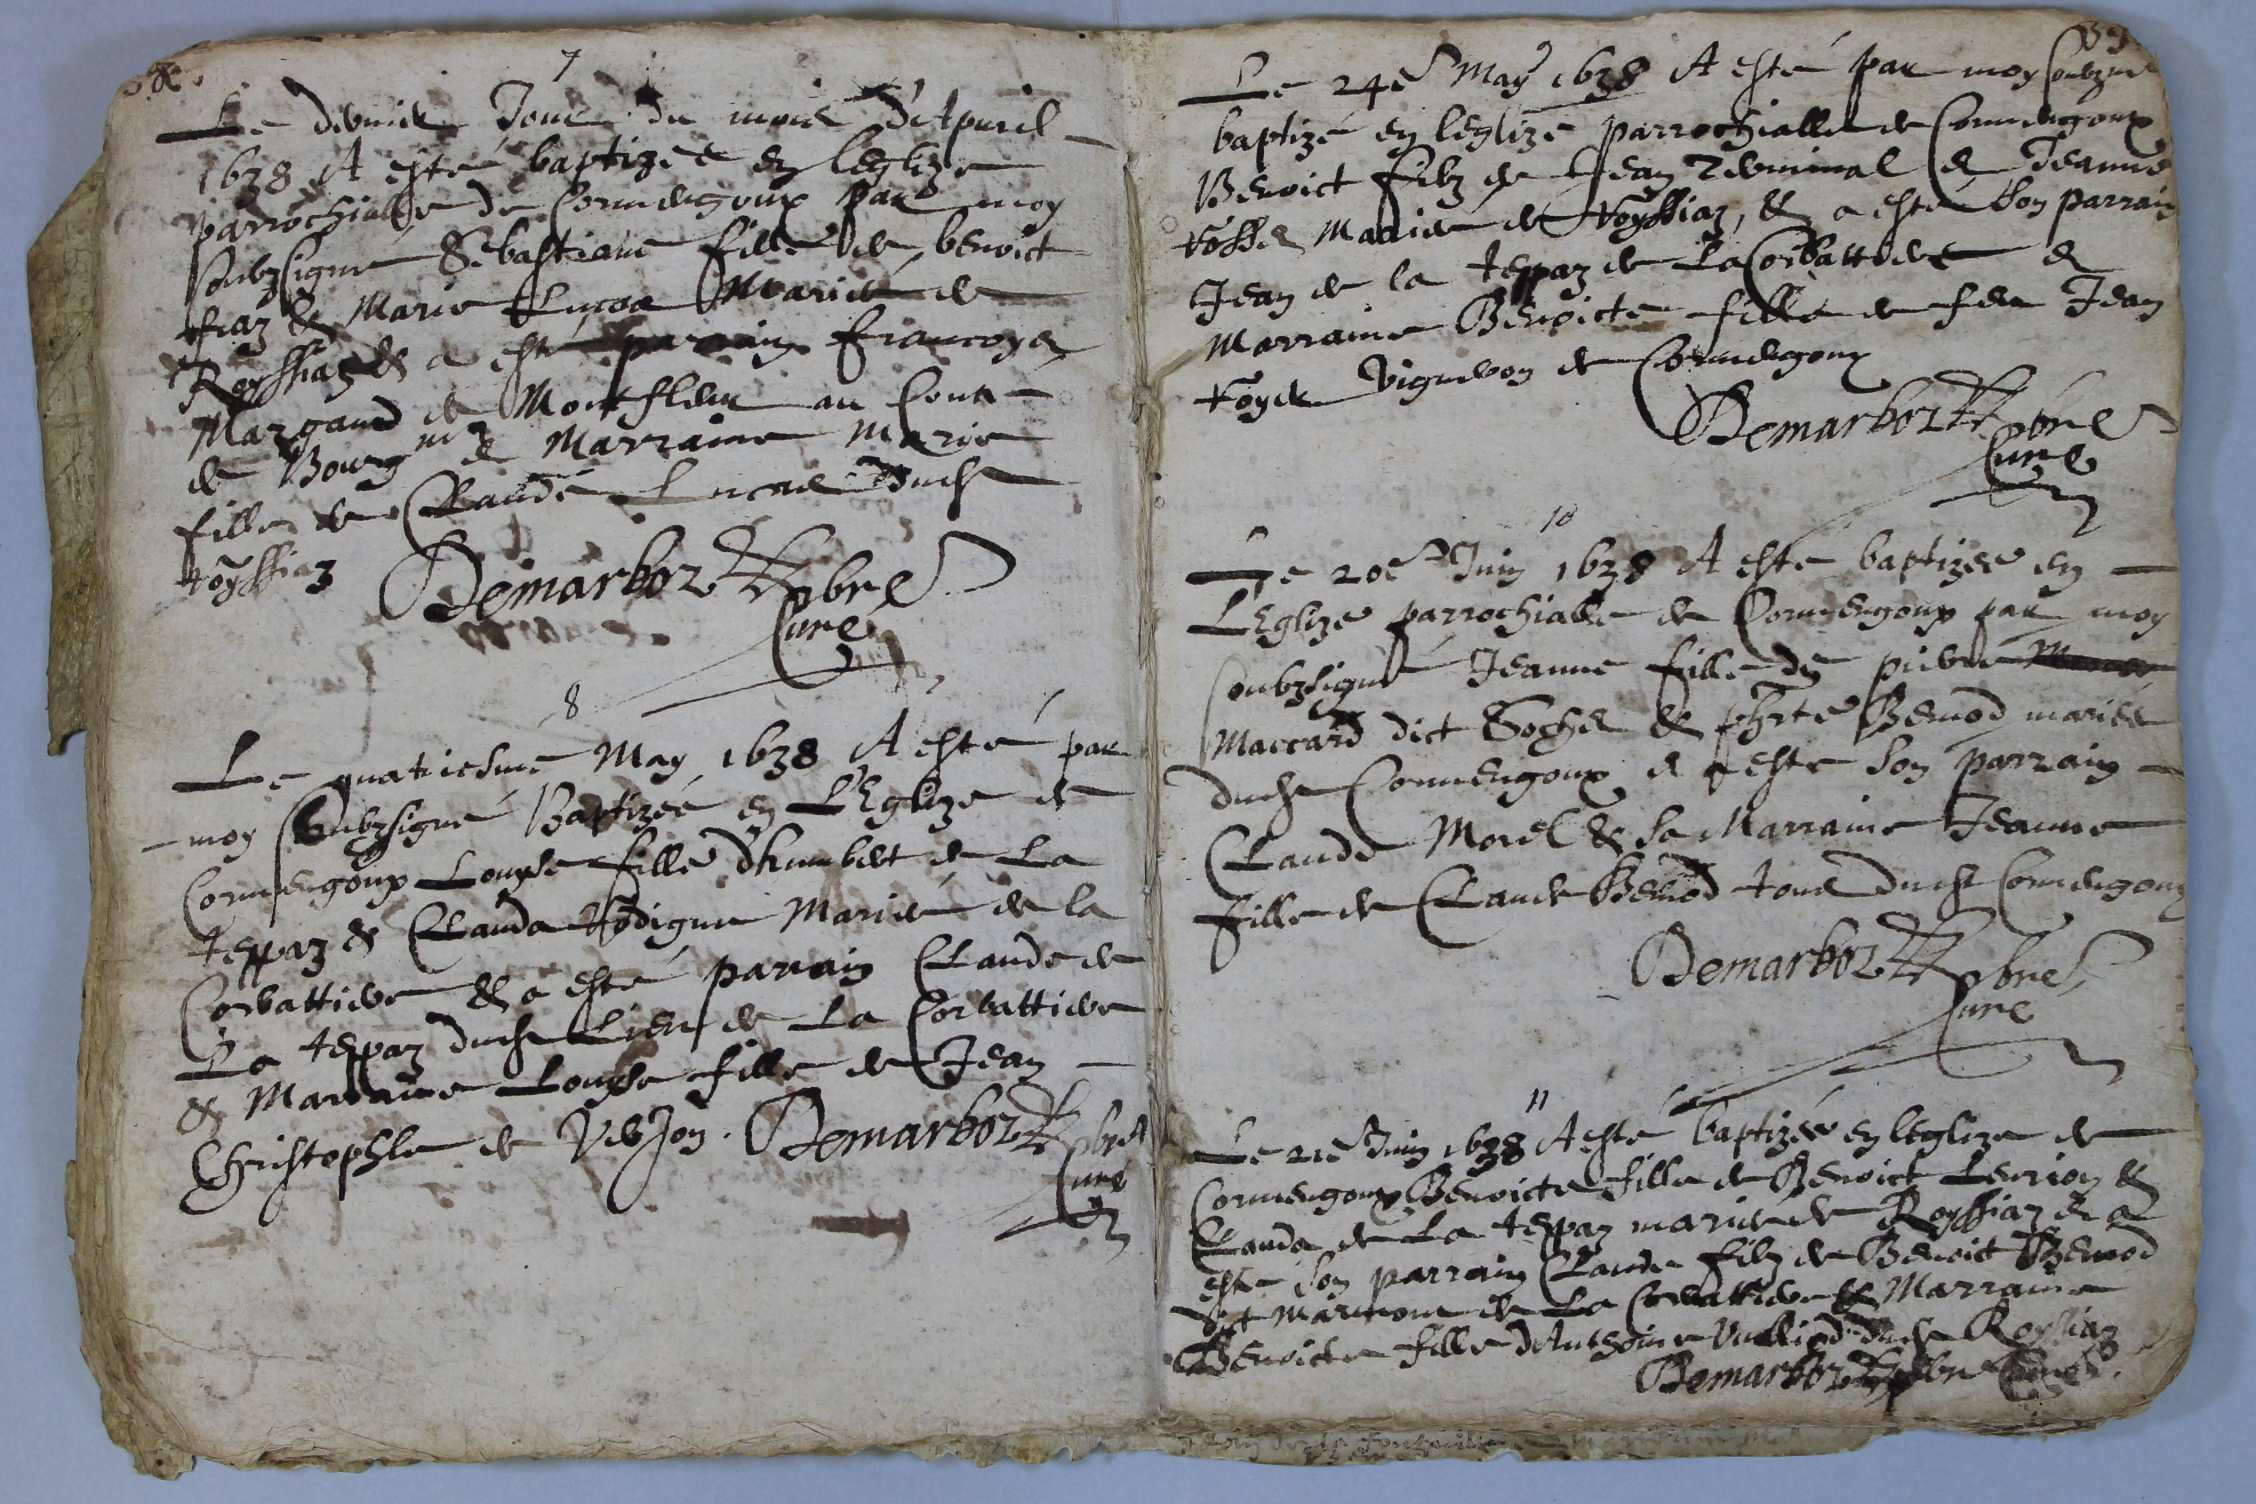 7
Le dernier Jour du mois d'Apuril
1638 A esté baptizée en leglize
parrochialle de Cormengoux par moy
soubzsigné Sebastiane fille de benoict
& Marie Lucas Mariés de
Royssiaz & a esté parrain Francoys
Mazgaud de Montfleur au Conté
de Bourgne & Marraine Marie
fille de Claude Lucas dudt
royssiaz
Demarboz pbre
Curé
8
Le quatriesme May 1638 A esté par
moy Soubzsigné Baptizée en L'Eglize de
Cormengoux Louyse fille d'humbert de La
teppaz & Clauda Rodigue Mariés de la
Corbattiere & a esté parrain Claude de
La teppaz dudt Lieu de La Corbattiere
& Marraine Louyse fille de Jean
Christophle de Verjon. Demarboz pbre
Curé
Le 24e May 1638 A esté par moy soubzne
baptizé en leglize parrochialle de Cormengoux
Benoict filz de Jean & Jeanne
Mariés de royssiaz, & a esté son parrain
Jean de la teppaz de La Corbattiere &
Marraine Benoicte fille de feu Jean
royer vigneron de Cormengoux
Demarboz pbre
Curé
10
Le 20e Juin 1638 A esté baptizée en
LEglize parrochialle de Cormengoux par moy
soubzsigné Jeanne fille de pierre
Maccard dict & Bernod mariés
dudt Cormengoux & a esté son parrain
Claude Morel & sa Marraine Jeanne
fille de Claude Bernod tous dudt Cormengoux
Demarboz pbre
Curé
11
Le 21e Juin 1638 A esté baptizée en leglize de
Cormengoux Benoicte fille de Benoict Leurion &
Clauda de La teppaz mariés de Royssiaz & a
esté son parrain Claude filz de Benoict Bernod
dit de La Corbattiere & Marraine
Benoicte fille d'Anthoine Vuilliod dudt Royssiaz
Demarboz pbre Curé.